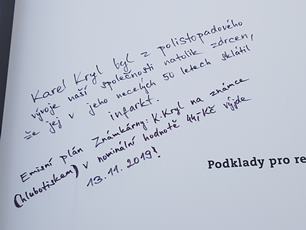 Karel Kryl byl z polistopadového
vývoje naší společnosti natolik zdrcen,
že jej v jeho necelých 50 letech sklátil
infarkt.
Emisní plán Známkárny: K. Kryl na známce
(hlubotiskem) v nominální hodnotě 44,- Kč vyjde
13.11.2019!
Podklady pro re